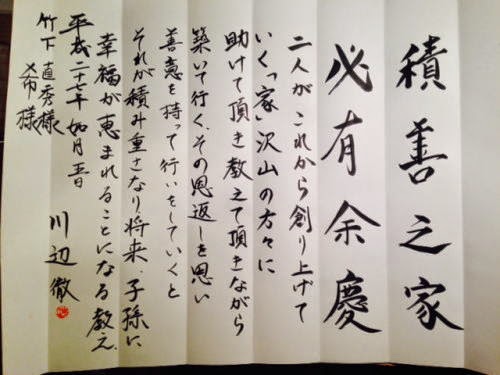 積善之家
必有余慶
二人がこれから創り上げて
いく「家」沢山の方々に
助けて頂き教えて頂きながら
築いて行く、その恩返しを思い
善意を持って行いをしていくと
それが積み重さなり将来、子孫に
幸福が恵まれることになる教え、
平成二十七年 如月 吾
川辺 徹
竹下 直秀様
希様